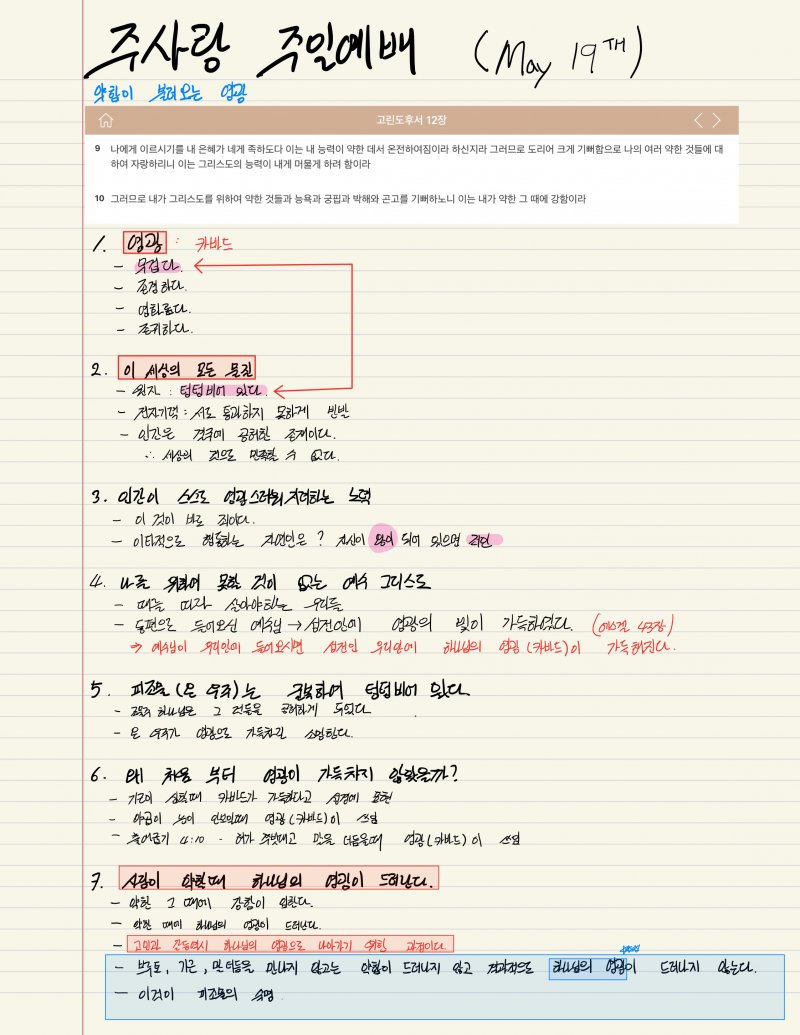 주사랑 주일예배 (May 19TH)
약함이 불러오는 영광
고린도후서 12장
9 나에게 이르시기를 내 은혜가 네게 족하도다 이는 내 능력이 약한 데서 온전하여짐이라 하신지라 그러므로 도리어 크게 기뻐함으로 나의 여러 약한 것들에 대
하여 자랑하리니 이는 그리스도의 능력이 내게 머물게 하려 함이라
10 그러므로 내가 그리스도를 위하여 약한 것들과 능욕과 궁핍과 박해와 곤고를 기뻐하노니 이는 내가 약한 그 때에 강함이라
1. 영광 : 카바드
- 무겁다.
- 존경하다.
- 영화롭다.
- 존귀하다.
2. 이 세상의 모든 물질
- 원자 : 텅텅비어 있다.
- 전자기력 : 서로 통과하지 못하게 반발
- 인간은 경우에 공허한 존재이다.
∴ 세상의 것으로 만족할 수 없다.
3. 인간이 스스로 영광스러워지려하는 노력
- 이 것이 바로 죄이다.
- 이타적으로 행동하는 자연인은? 자신이 왕이 되어 있으면 죄인
4. 나를 위하여 못할 것이 없는 예수 그리스도
- 때를 따라 살아야하는 우리들
- 동편으로 들어오신 예수님 → 성전안에 영광의 빛이 가득하였다. (에스겔 43장)
⇒ 예수님이 우리안에 들어오시면 성전인 우리안에 하나님의 영광(카바드)이 가득해진다.
5. 피조물(온 우주)는 굴복하여 텅텅비어 있다.
- 교묘히 하나님은 그 것들을 공허하게 두셨다
- 온 우주가 영광으로 가득차길 소망한다.
6. 왜 처음 부터 영광이 가득차지 않았을까?
- 기근이 심할때 카바드가 가득하다고 성경에 표현
- 야곱이 눈이 안보일때 영광(카바드)이 쓰임
- 출애굽기 4:10 - 혀가 주벅대고 말을 더듬을때 영광(카바드)이 쓰임
7. 사람이 약할때 하나님의 영광이 드러난다.
- 약한 그 때에 강함이 임한다.
- 약한 때에 하나님의 영광이 드러난다.
- 고민과 갈등역시 하나님의 영광으로 나아가기 위한 과정이다.
- 부족, 기근, 말더듬을 만나지 않고는 약함이 드러나지 않고 결과적으로 하나님의 영광이 드러나지 않는다.
- 이것이 피조물의 숙명